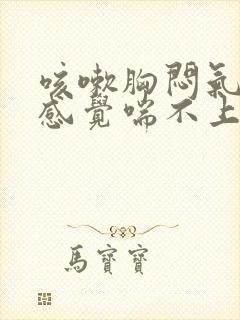 咳嗽胸悶氣
感覺喘不上
馬寶寶